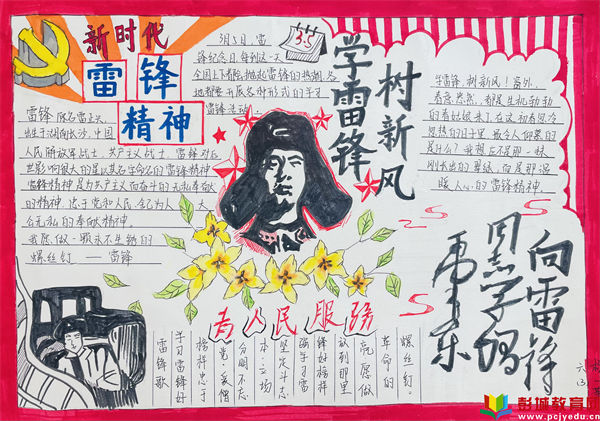 新时代
雷锋
精神
3月5日,雷
锋纪念日,每到这一天
全国上下都会掀起雷锋的热潮,各
地都要开展各种形式的学习
雷锋活动。
3.5
学雷锋
树新风
雷锋 原名雷正兴,
出生于湖南长沙,中国
人民解放军战士,共产主义战士,雷锋对后
世影响很大的是以其名字命名的雷锋精神
雷锋精神是为共产主义而奋斗的无私奉献
的精神,忠于党和人民、舍己为人、大
公无私的奉献精神。
我愿做一颗永不生锈的
螺丝钉 —— 雷锋
学雷锋,树新风!窗外,
春意盎然,都是生机勃勃
的春姑娘来了,在这初春忽冷
忽热的日子里,最令人仰慕的
是什么?我想应不是那一抹
刚长出的翠绿,而是那温
暖人心的雷锋精神。
向雷锋
同志学习
毛泽东
为人民服务
螺丝钉。
革命的
放到那里
亮,愿做
锋好榜样
强学习雷
坚定斗志
本,立场
分明不忘
党,爱憎
榜样忠于
学习雷锋好
雷锋歌
彭城教育网
www.pcjyedu.cn